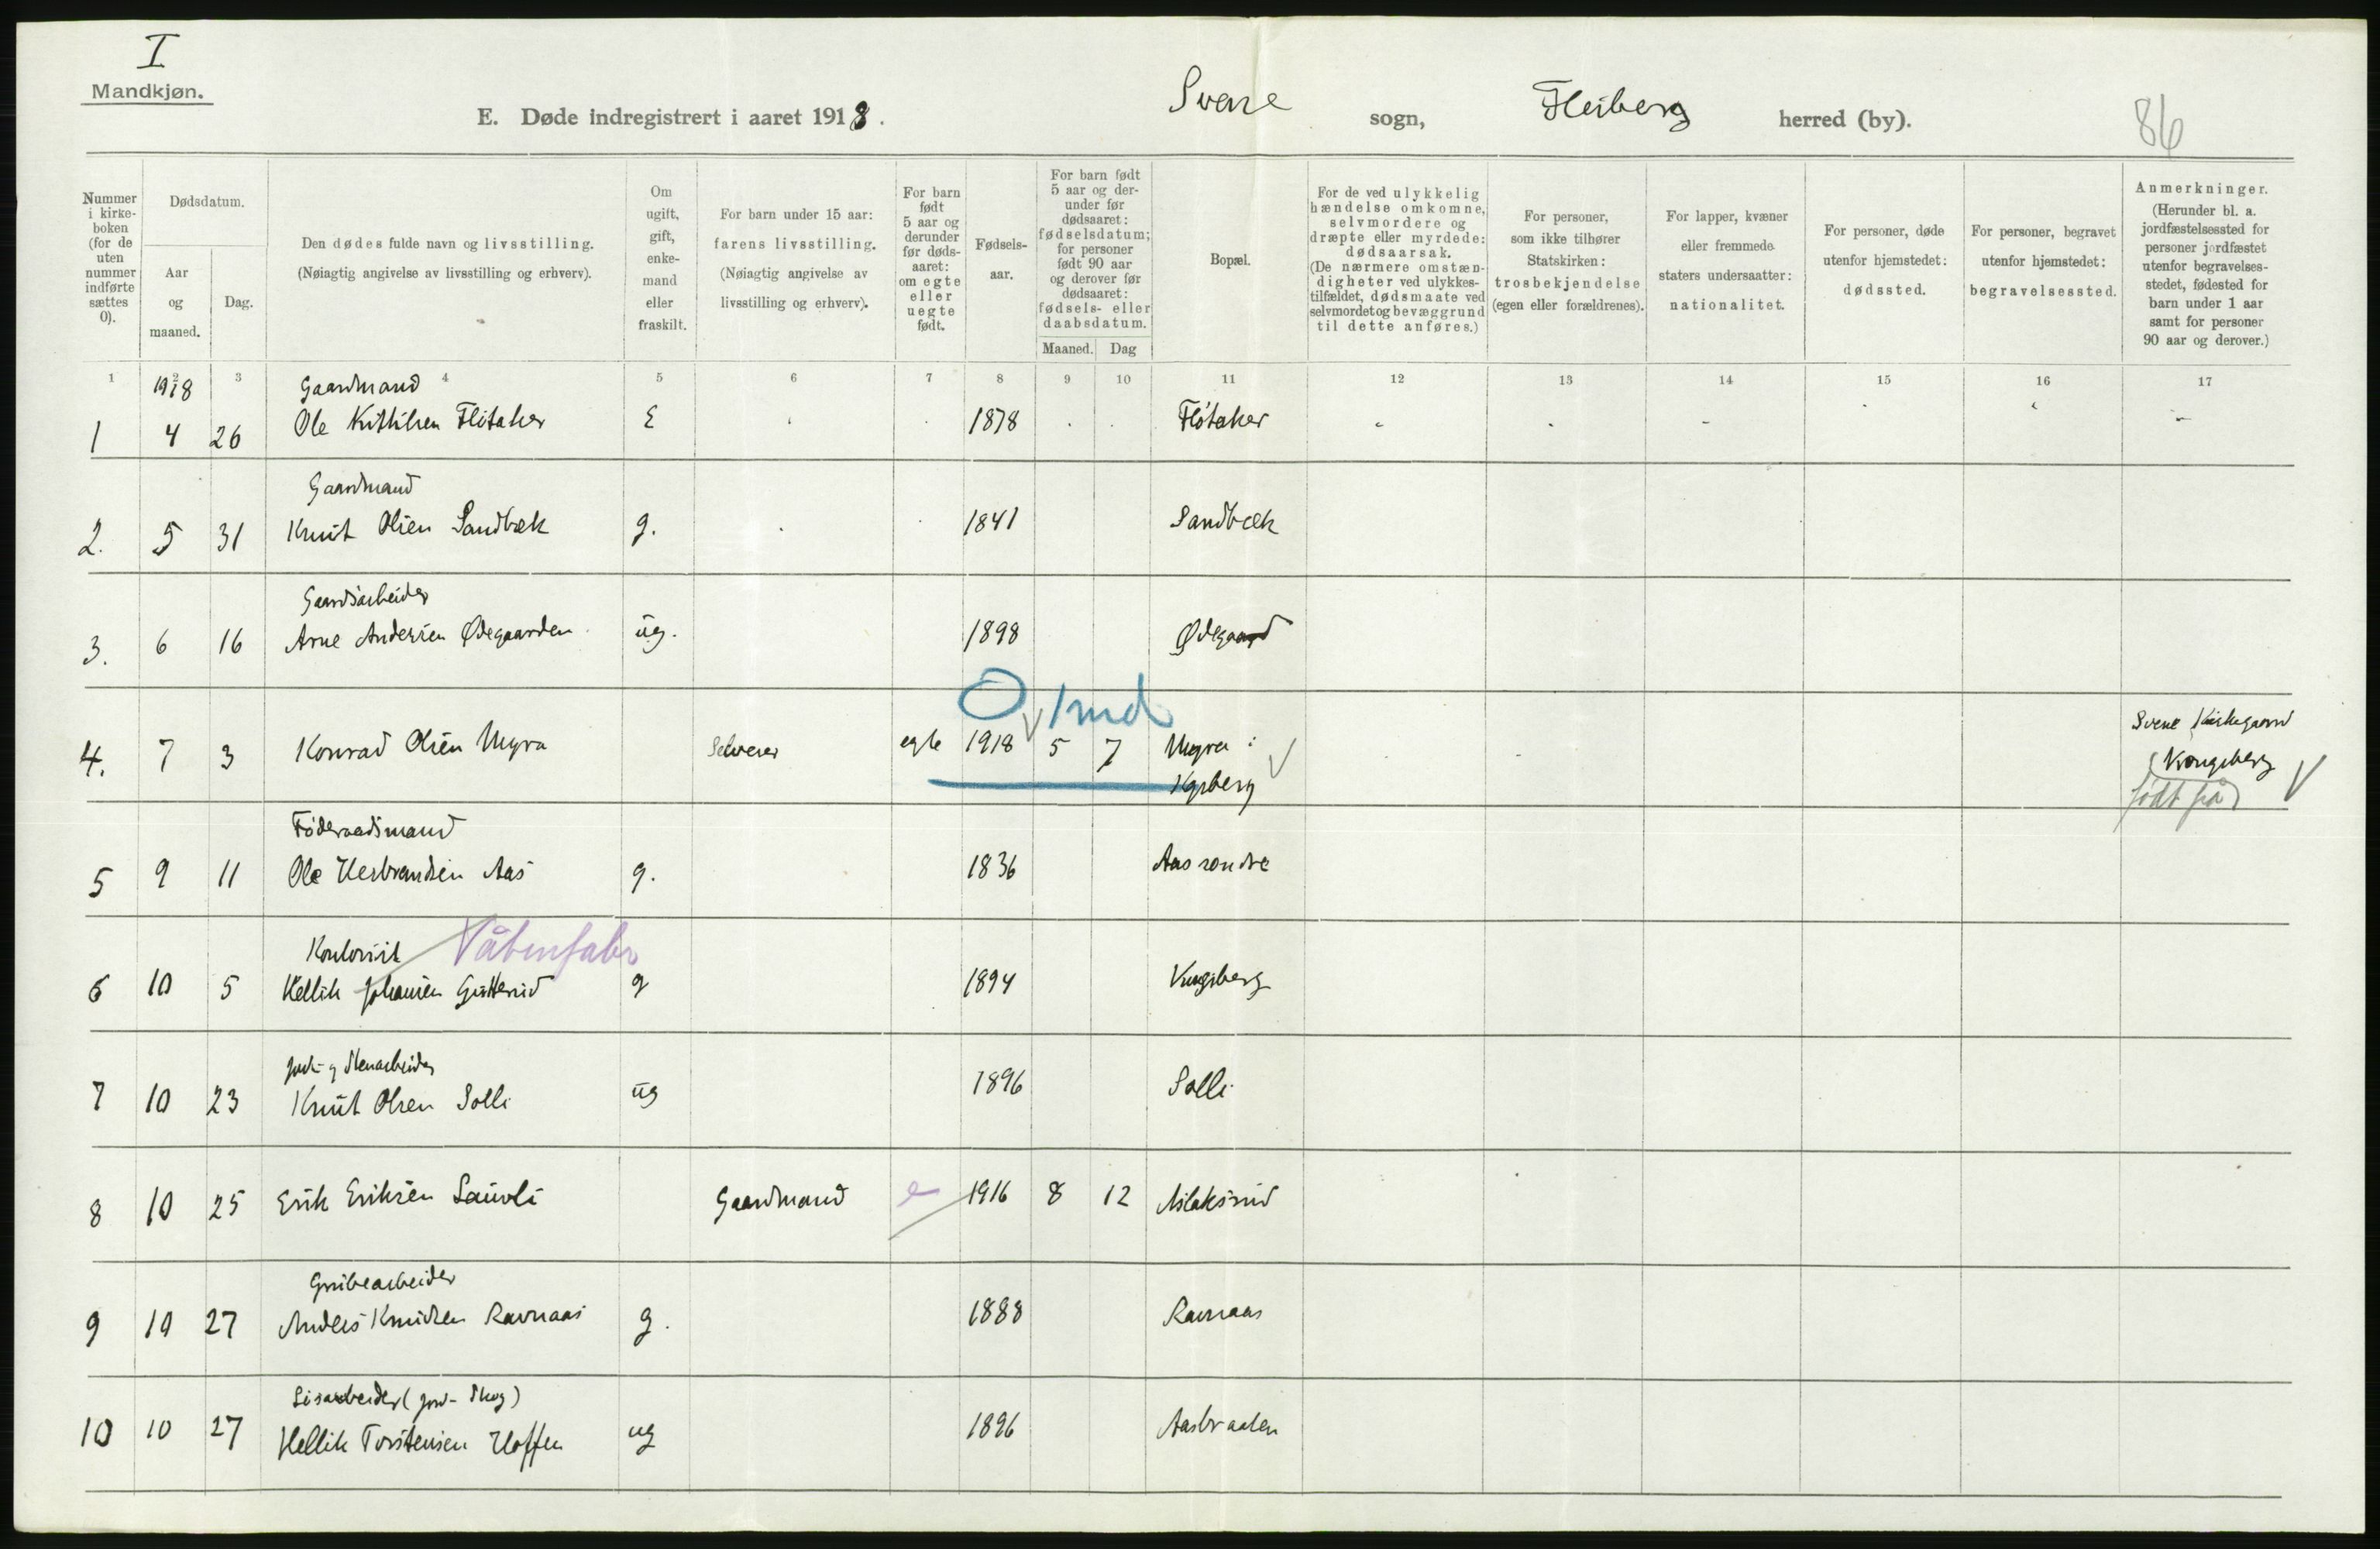 I
Mandkjøn.
E. Døde indregistrert i aaret 1918.
Svene sogn, Flesberg herred (by).
86
Nummer i kirke-boken (for de uten nummer indførte sættes 0).
Dødsdatum.
Aar og maaned.
Dag.
Den dødes fulde navn og livsstilling.
(Nøiagtig angivelse av livsstilling og erhverv).
Om ugift, gift, enke-mand eller fraskilt.
For barn under 15 aar: farens livsstilling.
(Nøiagtig angivelse av livsstilling og erhverv).
For barn født 5 aar og derunder før døds-aaret: om egte eller uegte født.
Fødsels-aar.
For barn født 5 aar og der-under før dødsaaret: fødselsdatum; for personer født 90 aar og derover før dødsaaret: fødsels- eller daabsdatum.
Maaned. Dag
Bopæl.
For de ved ulykkelig hændelse omkomne, selvmordere og dræpte eller myrdede: dødsaarsak.
(De nærmere omstæn-digheter ved ulykkes-tilfældet, dødsmaate ved selvmordet og bevæggrund til dette anføres.)
For personer, som ikke tilhører Statskirken: trosbekjendelse (egen eller forældrenes).
For lapper, kvæner eller fremmede staters undersaatter: nationalitet.
For personer, døde utenfor hjemstedet: dødssted.
For personer, begravet utenfor hjemstedet: begravelsessted.
Anmerkninger.
(Herunder bl. a. jordfæstelsessted for personer jordfæstet utenfor begravelses-stedet, fødested for barn under 1 aar samt for personer 90 aar og derover.)
1 2 3 4 5 6 7 8 9 10 11 12 13 14 15 16 17
1918 Gaardmand
1 4 26 Ole Kittilsen Flótaker E 1878 Flótaker
Gaardmand
2. 5 31 Knut Olsen Sandbæk g. 1841 Sandbæk
Gaardsarbeider
3. 6 16 Arne Andersen Ødegaarden ug. 1898 Ødegaard
0 1 md
4. 7 3 Konrad Olsen Myra Selveier egte 1918 5 7 Myra i Kgsberg Svene Kirkegaard
Kongsberg
født på
Föderaadsmand
5 9 11 Ole Herbrandsen Aas g. 1836 Aas søndre
Kontorist Våbenfabr
6 10 5 Hellik Johansen g 1894 Kongsberg
Jord- og Stenarbeider
7 10 23 Knut Olsen Solli ug 1896 Solli
8 10 25 Erik Eriksen Lauvli Gaardmand e 1916 8 12 Aslaksrud
Grubearbeider
9 10 27 Anders Knudsen Ravnaas g. 1888 Ravnaas
(Jord- Skog)
10 10 27 Hellik Torstensen Hoffen ug 1896 Aasbraaten